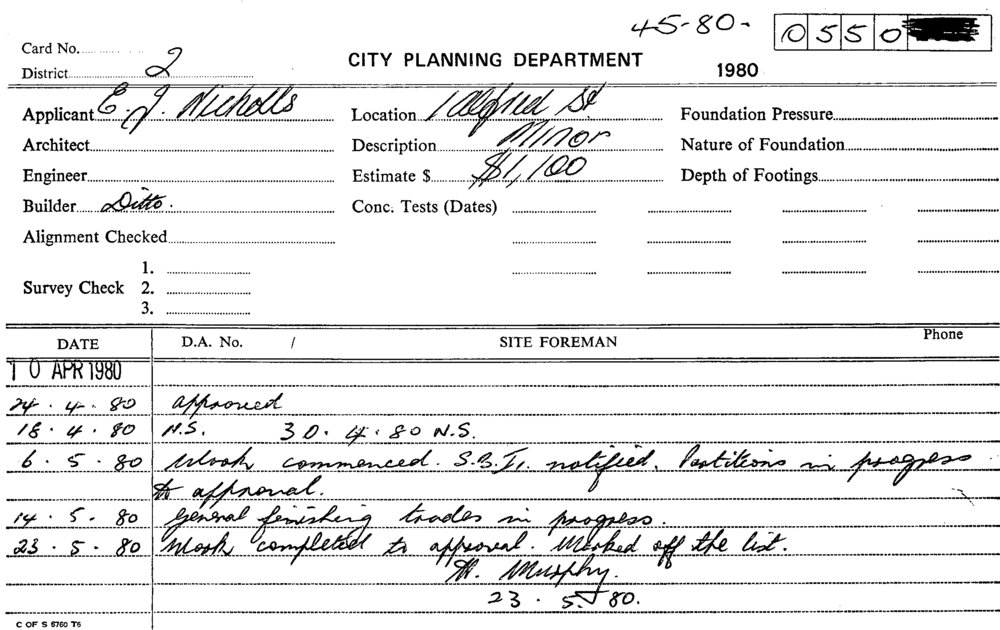 45-80- 0550
Card No.
District 2 CITY PLANNING DEPARTMENT 1980
Applicant E. J. Nicholls Location 1 Alfred St Foundation Pressure
Architect Description Minor Nature of Foundation
Engineer Estimate $ $1,100 Depth of Footings
Builder Ditto. Conc. Tests (Dates)
Alignment Checked
1.
Survey Check 2.
3.
DATE D.A. No. / SITE FOREMAN Phone
10 APR 1980
24.4.80 approved
18.4.80 N.S. 30.4.80 N.S.
6.5.80 Work commenced. S.B.I. notified. Partitions in progress
to approval.
14.5.80 General finishing trades in progress.
23.5.80 Work completed to approval. Marked off the list.
Murphy.
23.5.80.
C OF S 6760 T6